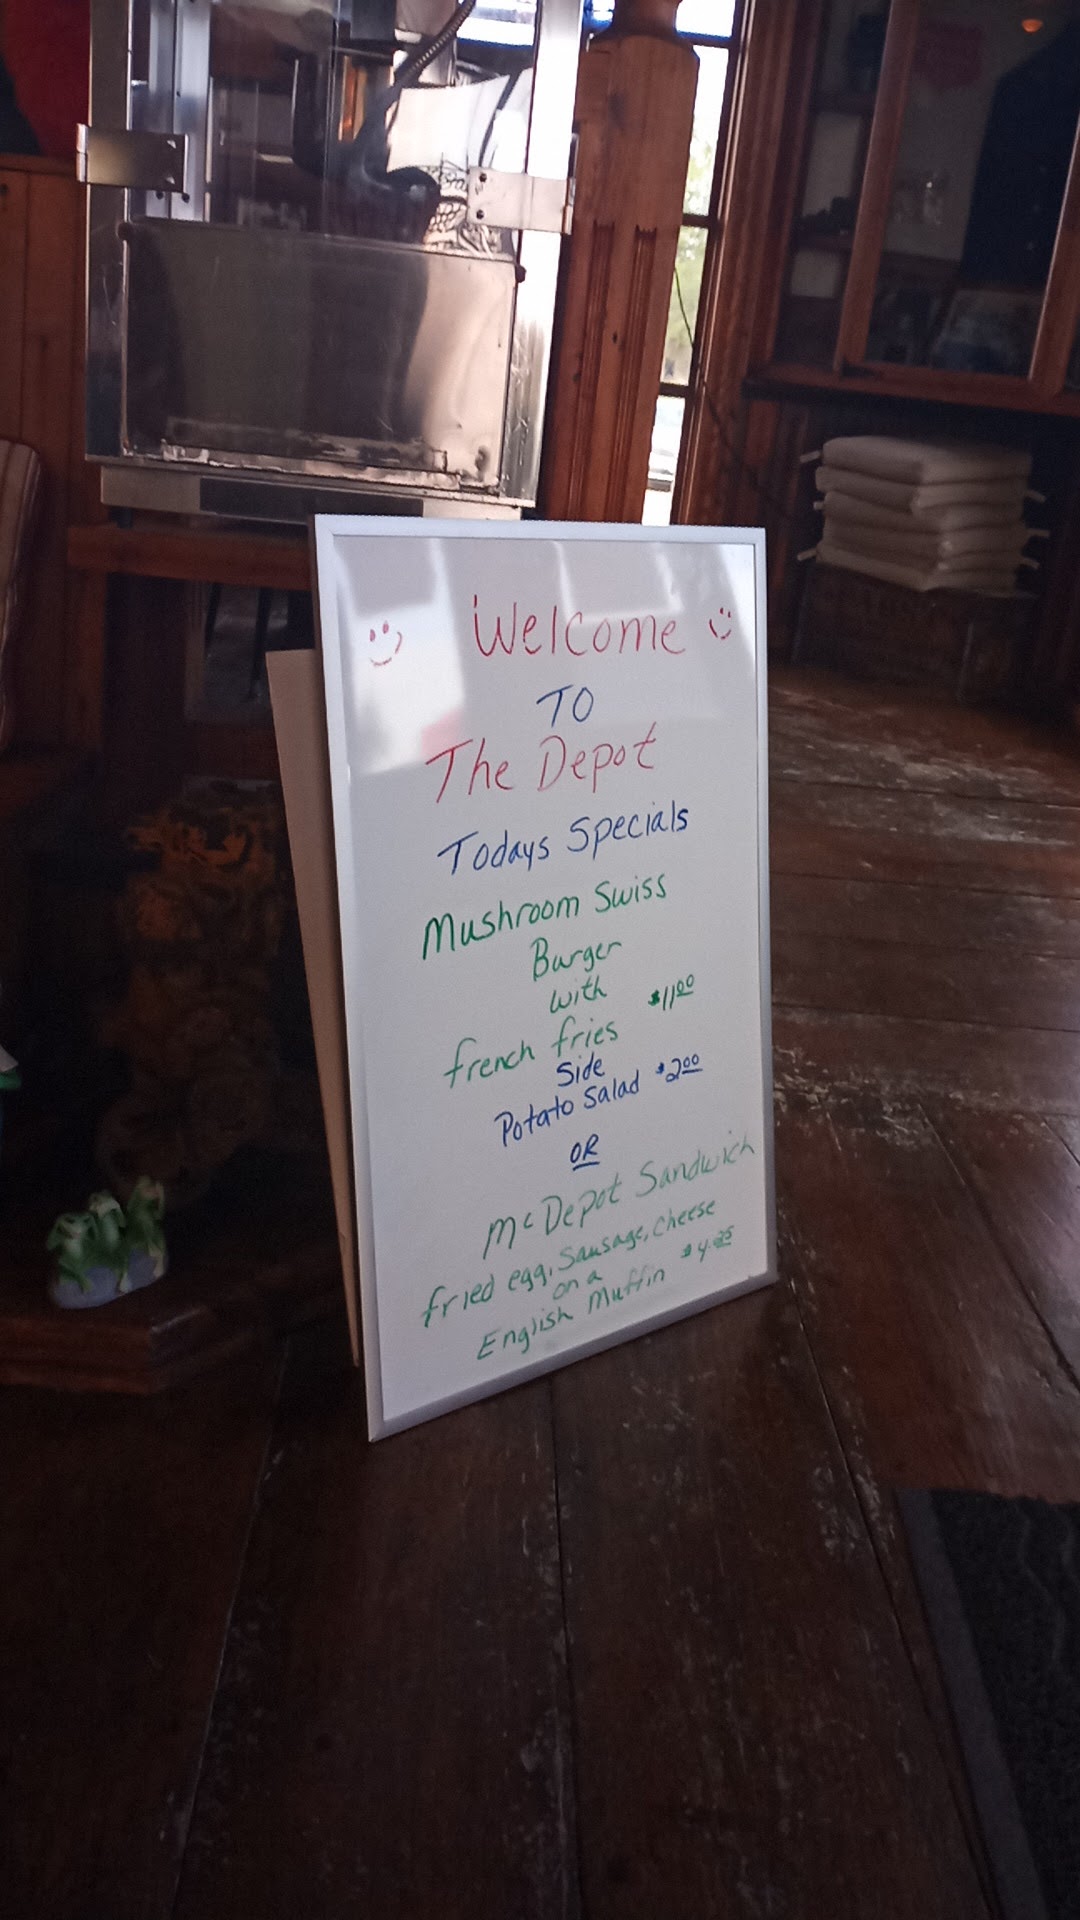 Welcome
TO
The Depot
Todays Specials
Mushroom Swiss
Burger
with
french fries $11.00
Side
Potato Salad $2.00
OR
McDepot Sandwich
fried egg, Sausage, Cheese
on a
English Muffin $4.25